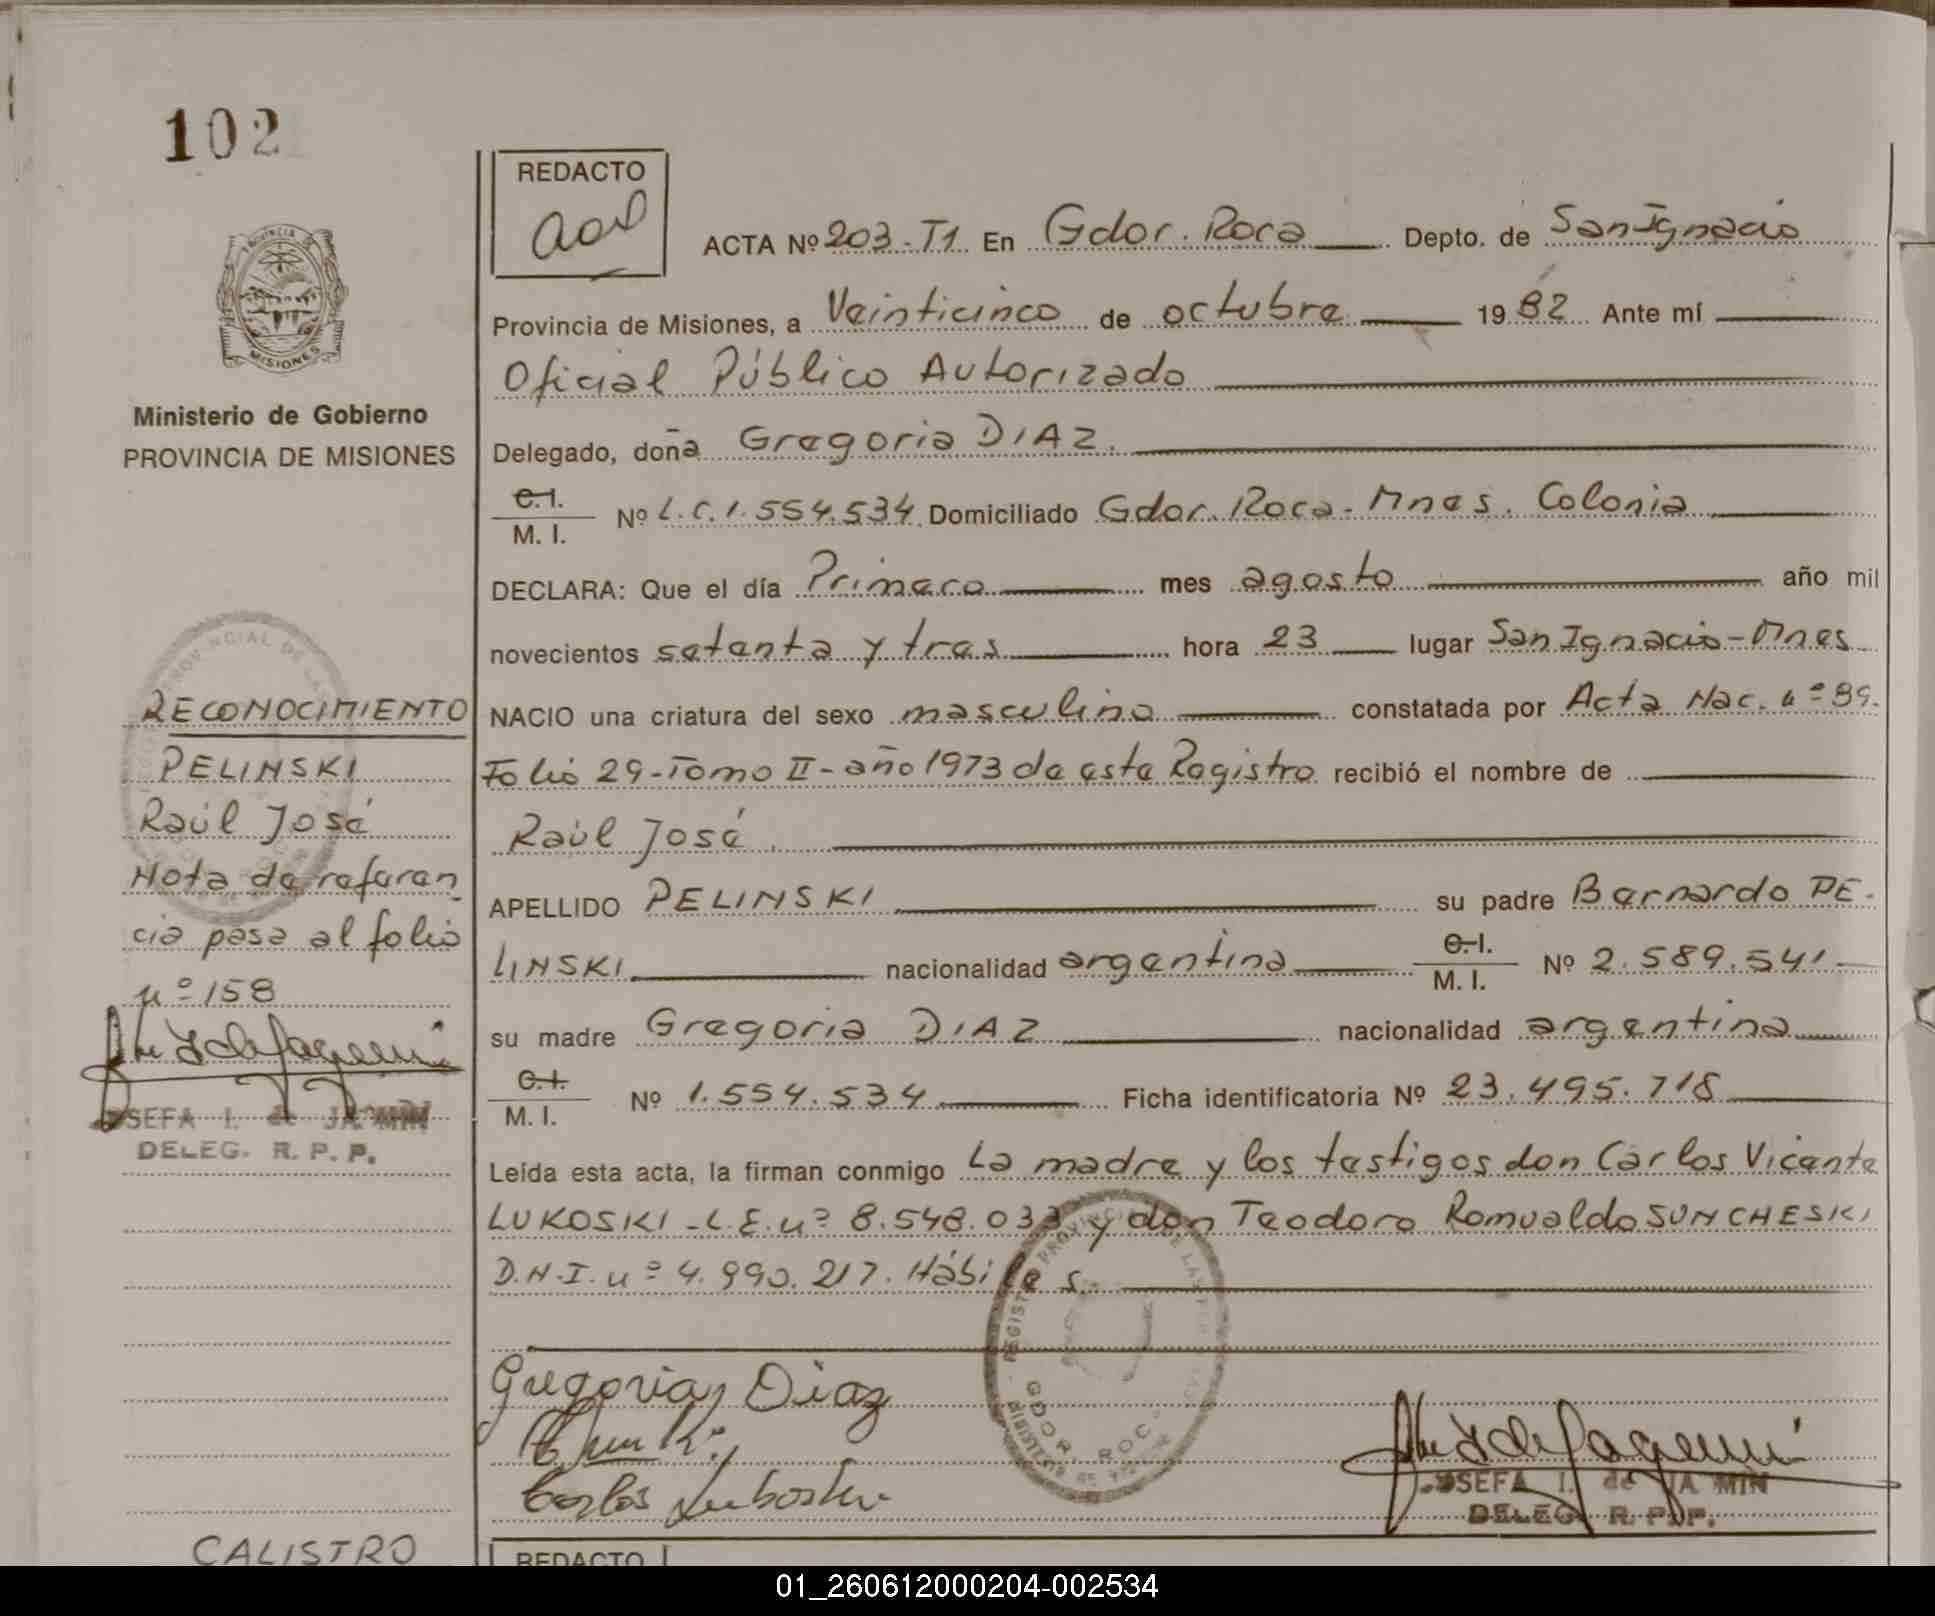 102
PROVINCIA DE
MISIONES
Ministerio de Gobierno
PROVINCIA DE MISIONES
RECONOCIMIENTO
PELINSKI
Raúl José
Nota de referen
cia pasa al folio
nº 158
SEFA I. de JA MIN
DELEG. R. P. P.
CALISTRO
REDACTO
ACTA Nº 203-T1 En Gdor. Roca Depto. de San Ignacio
Provincia de Misiones, a Veinticinco de octubre 1982 Ante mí
Oficial Público Autorizado
Delegado, doña Gregoria DIAZ.
C.I.
M. I. Nº L.C.1.554.534 Domiciliado Gdor. Roca-Mnes. Colonia
DECLARA: Que el día Primero mes agosto año mil
novecientos setenta y tres hora 23 lugar San Ignacio-Mnes
NACIO una criatura del sexo masculino constatada por Acta Nac. nº 89.
Folio 29-Tomo II-año 1973 de este Registro recibió el nombre de
Raúl José.
APELLIDO PELINSKI su padre Bernardo PE-
LINSKI nacionalidad argentina C.I. M. I. Nº 2.589.541
su madre Gregoria DIAZ nacionalidad argentina
C.I.
M. I. Nº 1.554.534 Ficha identificatoria Nº 23.495.718
Leída esta acta, la firman conmigo La madre y los testigos don Carlos Vicente
LUKOSKI-L.E.nº 8.548.033 y don Teodoro Romualdo SUNCHESKI
D.N.I. nº 4.990.217. Hábiles.
Gregoria Diaz
Carlos
GDOR. ROC
SEFA I. de JA MIN
DELEG. R. P. P.
REDACTO
01_260612000204-002534